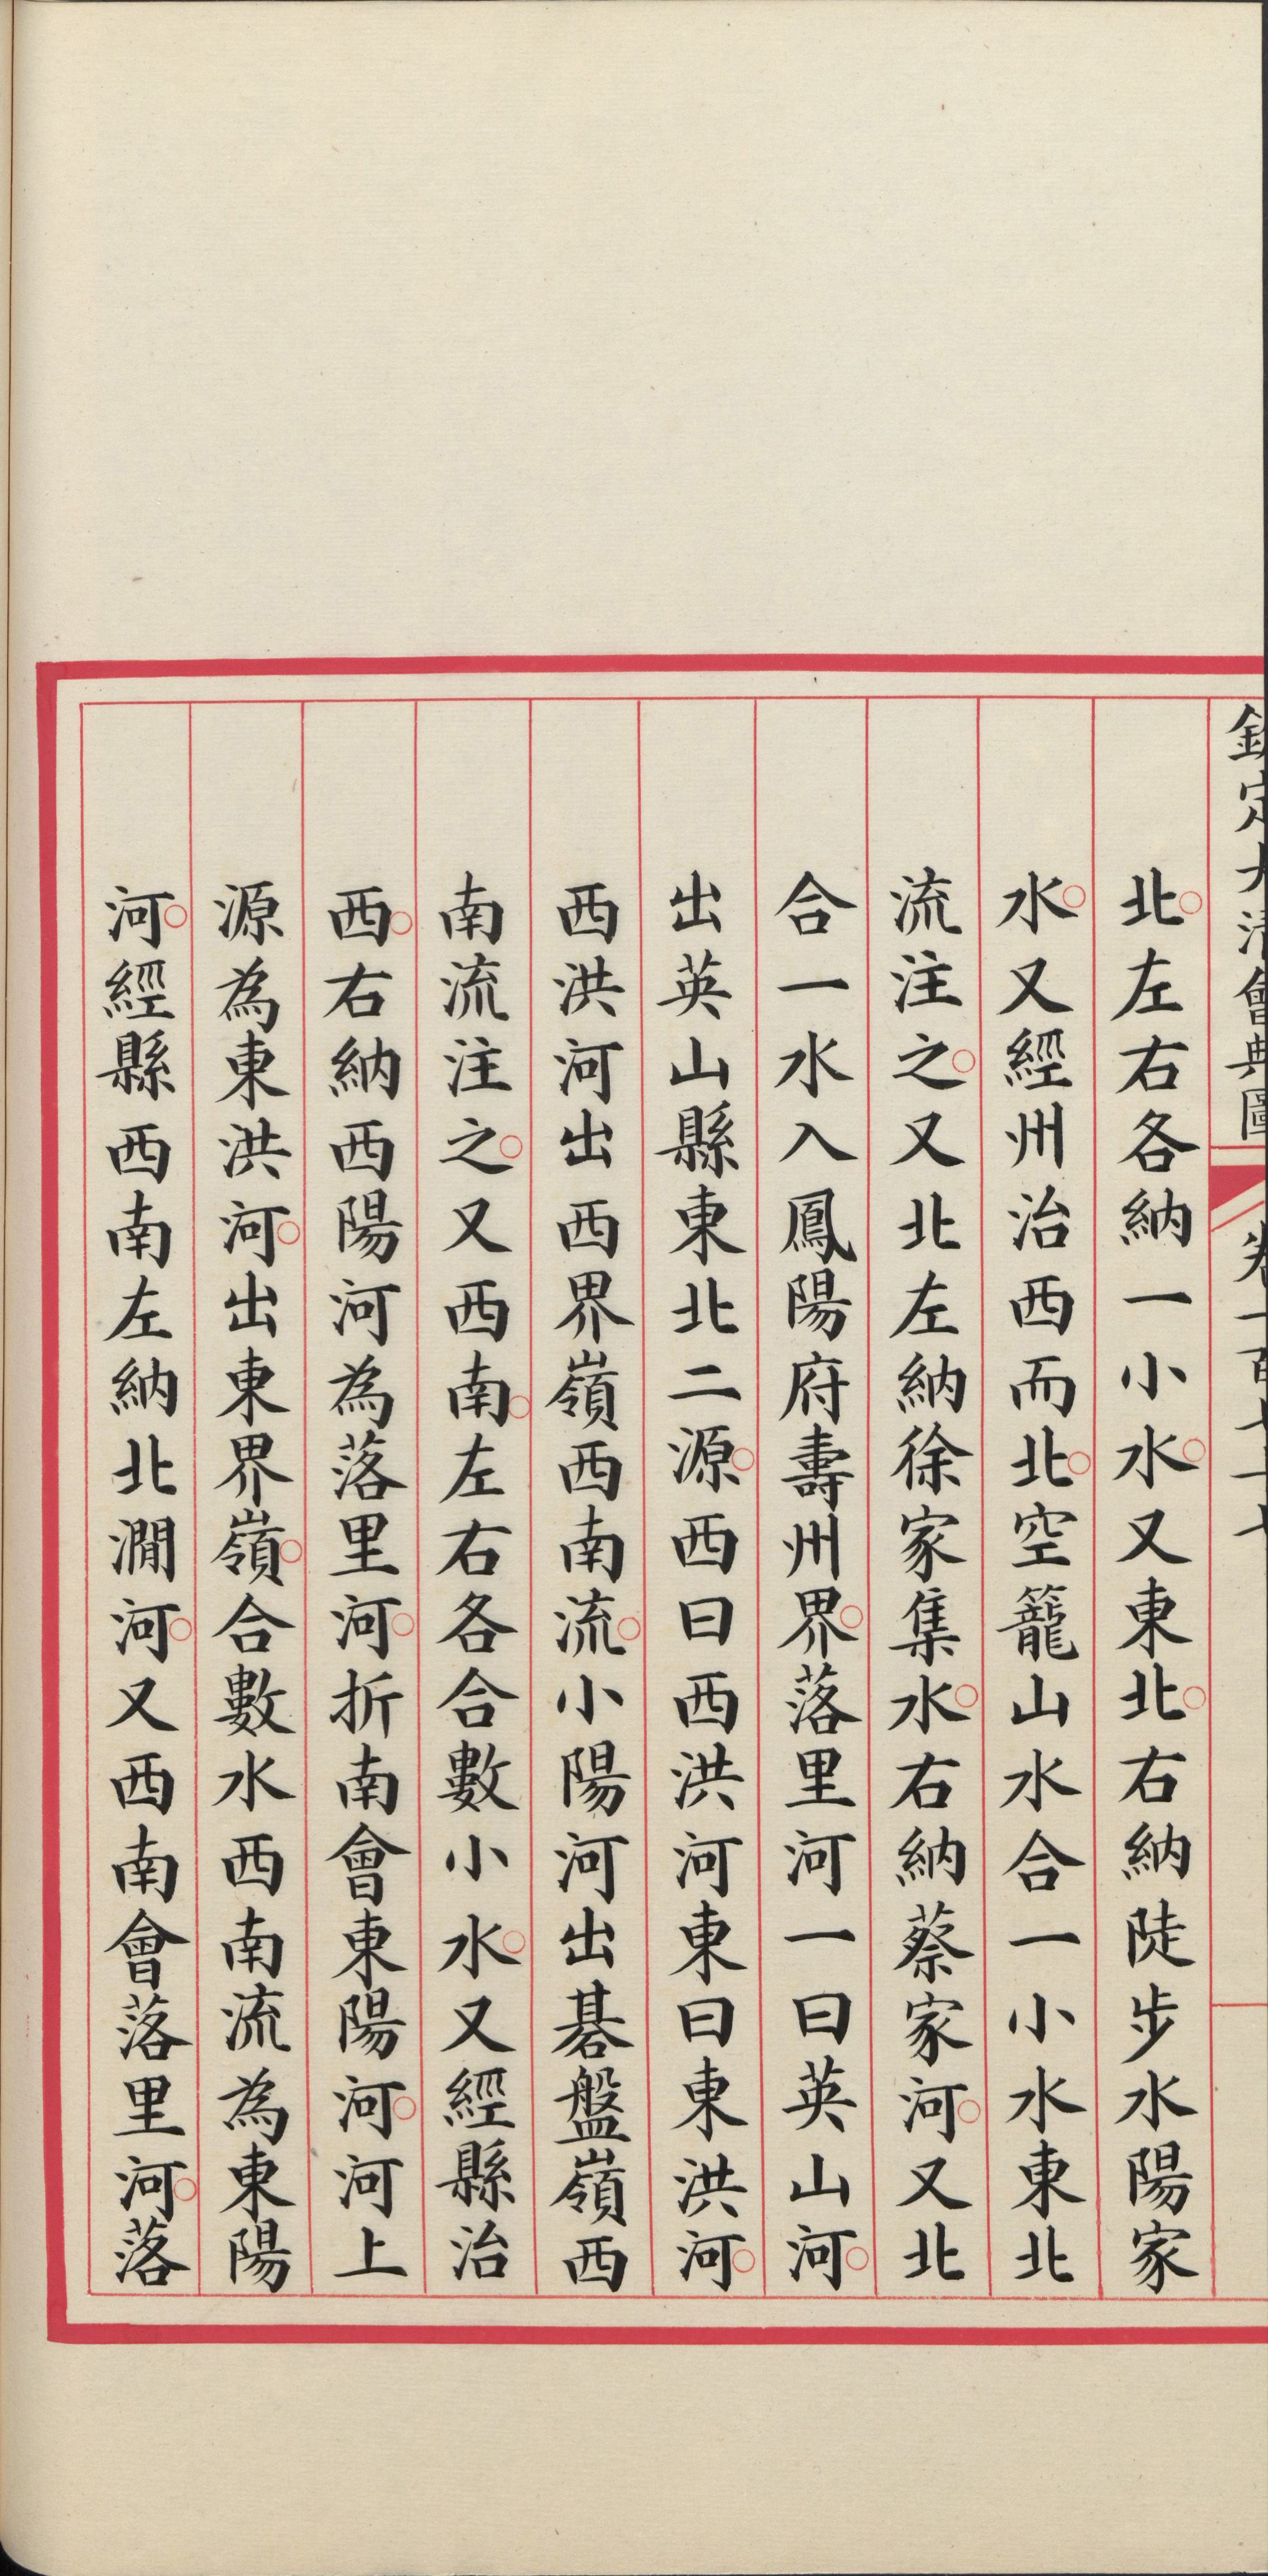 欽定大清會典圖 卷一百七十七
北○左右各納一小水○又東北○右納陡步水陽家
水○又經州治西而北○空籠山水合一小水東北
流注之○又北左納徐家集水○右納蔡家河○又北
合一水入鳳陽府壽州界○落里河一曰英山河○
出英山縣東北二源○西曰西洪河東曰東洪河○
西洪河出西界嶺西南流○小陽河出碁盤嶺西
南流注之○又西南○左右各合數小水○又經縣治
西○右納西陽河為落里河○折南會東陽河○河上
源為東洪河○出東界嶺○合數水西南流為東陽
河○經縣西南左納北澗河○又西南會落里河○落